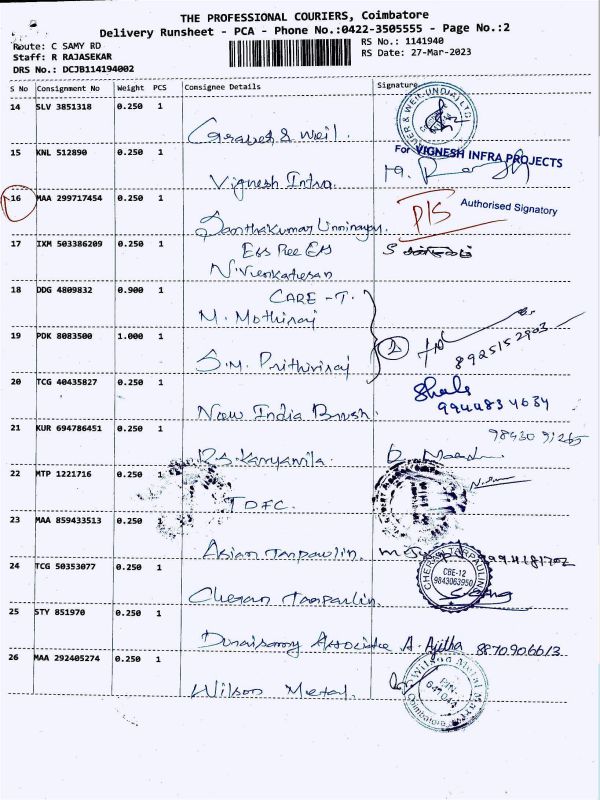 THE PROFESSIONAL COURIERS, Coimbatore
Delivery Runsheet - PCA - Phone No.:0422-3505555 - Page No.:2
Route: C SAMY RD
RS No.: 1141940
Staff: R RAJASEKAR
RS Date: 27-Mar-2023
DRS No.: DCJB114194002
S No Consignment No Weight PCS Consignee Details Signature
14 SLV 3851318 0.250 1
15 KNL 512890 0.250 1
For VIGNESH INFRA PROJECTS
Vignesh Infra.
16 MAA 299717454 0.250 1
P/S Authorised Signatory
17 IXM 503386209 0.250 1
N. Venkatesan
18 DDG 4809832 0.900 1
CARE - T.
M. Mothiraj
19 PDK 8083500 1.000 1
2
8925152903
S.M. Prithiviraj
20 TCG 40435827 0.250 1
9944834634
New India Brush.
21 KUR 694786451 0.250 1
22 MTP 1221716 0.250 1
23 MAA 859433513 0.250 1
Asian Tarpaulin.
24 TCG 50353077 0.250 1
CHERAN TARPAULINS
CBE-12
9843063950
Cheran Tarpaulin.
25 STY 851970 0.250 1
Duraisamy Associate A. Ajitha 8870906613
26 MAA 292405274 0.250 1
Wilson Metal
Wilson Metal Mart
Coimbatore